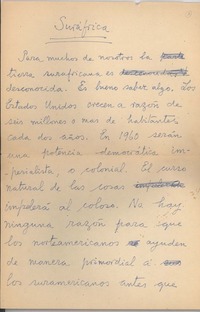 Suráfrica
Para muchos de nosotros la
tierra surafricana es
desconocida. Es bueno saber algo. Los
Estados Unidos crecen a razón de
seis millones o mas de habitantes
cada dos años. En 1960 serán
una potencia democrática im-
perialista, o colonial. El curso
natural de las cosas
impelerá al coloso. No hay
ninguna razón para que
los norteamericanos ayuden
de manera primordial a
los suramericanos antes que